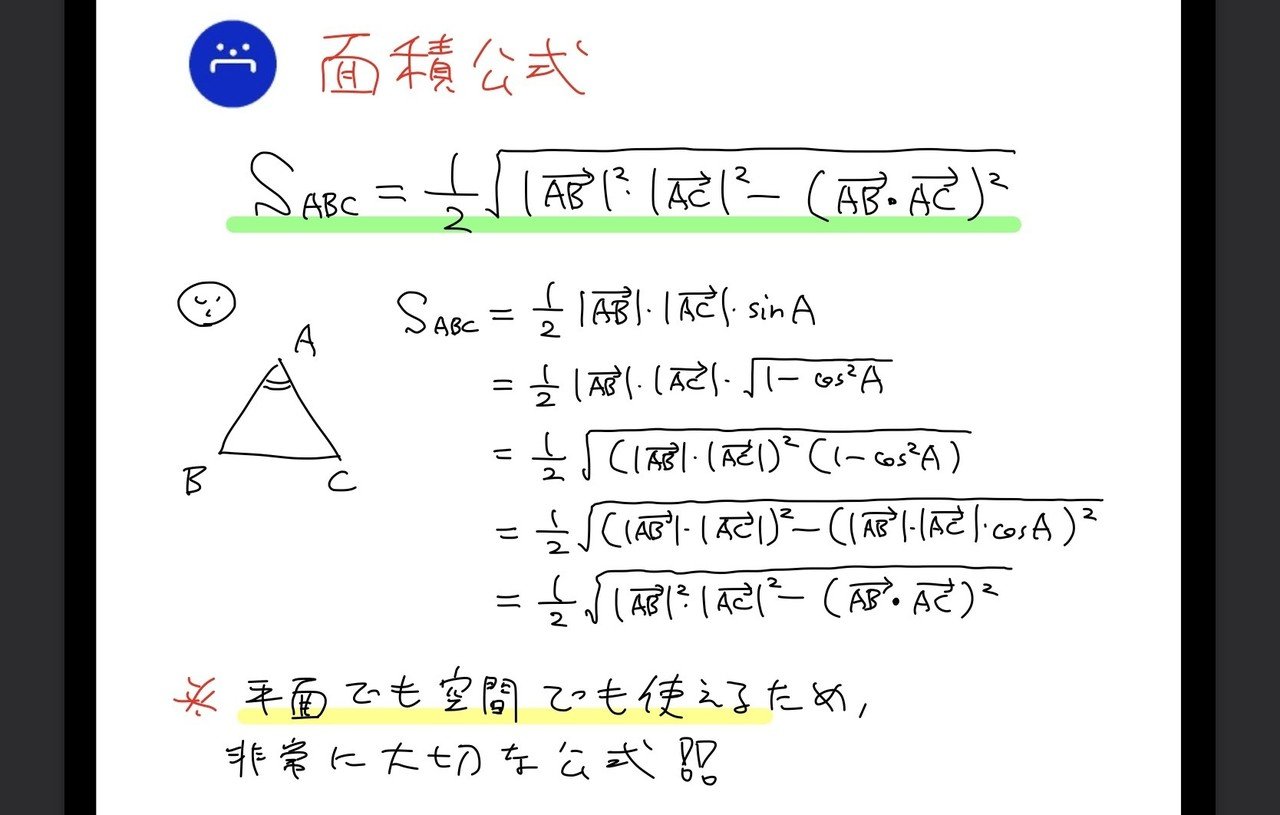 面積公式
S_ABC = 1/2 √(|AB→|²・|AC→|² − (AB→・AC→)²)
A
B
C
S_ABC = 1/2 |AB→|・|AC→|・sinA
= 1/2 |AB→|・|AC→|・√(1 − cos²A)
= 1/2 √((|AB→|・|AC→|)² (1 − cos²A))
= 1/2 √((|AB→|・|AC→|)² − (|AB→|・|AC→|・cosA)²)
= 1/2 √(|AB→|²・|AC→|² − (AB→・AC→)²)
※ 平面でも空間でも使えるため,
非常に大切な公式!!